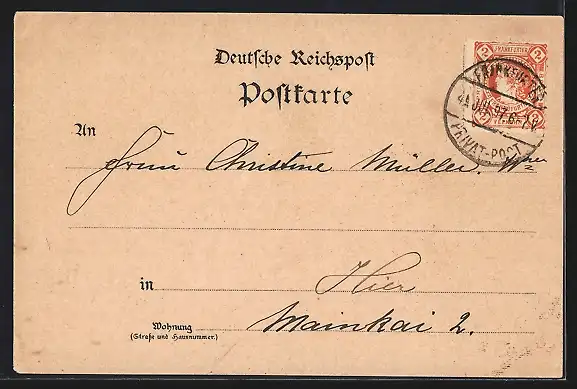 Deutsche Reichspost
Postkarte
2 FRANKFURTER 2
FRANKFURT
JUL 97 6-7 N
PRIVAT-POST
An
Frau Christine Müller. Wwe
in Hier
Wohnung Mainkai 2.
(Straße und Hausnummer.)